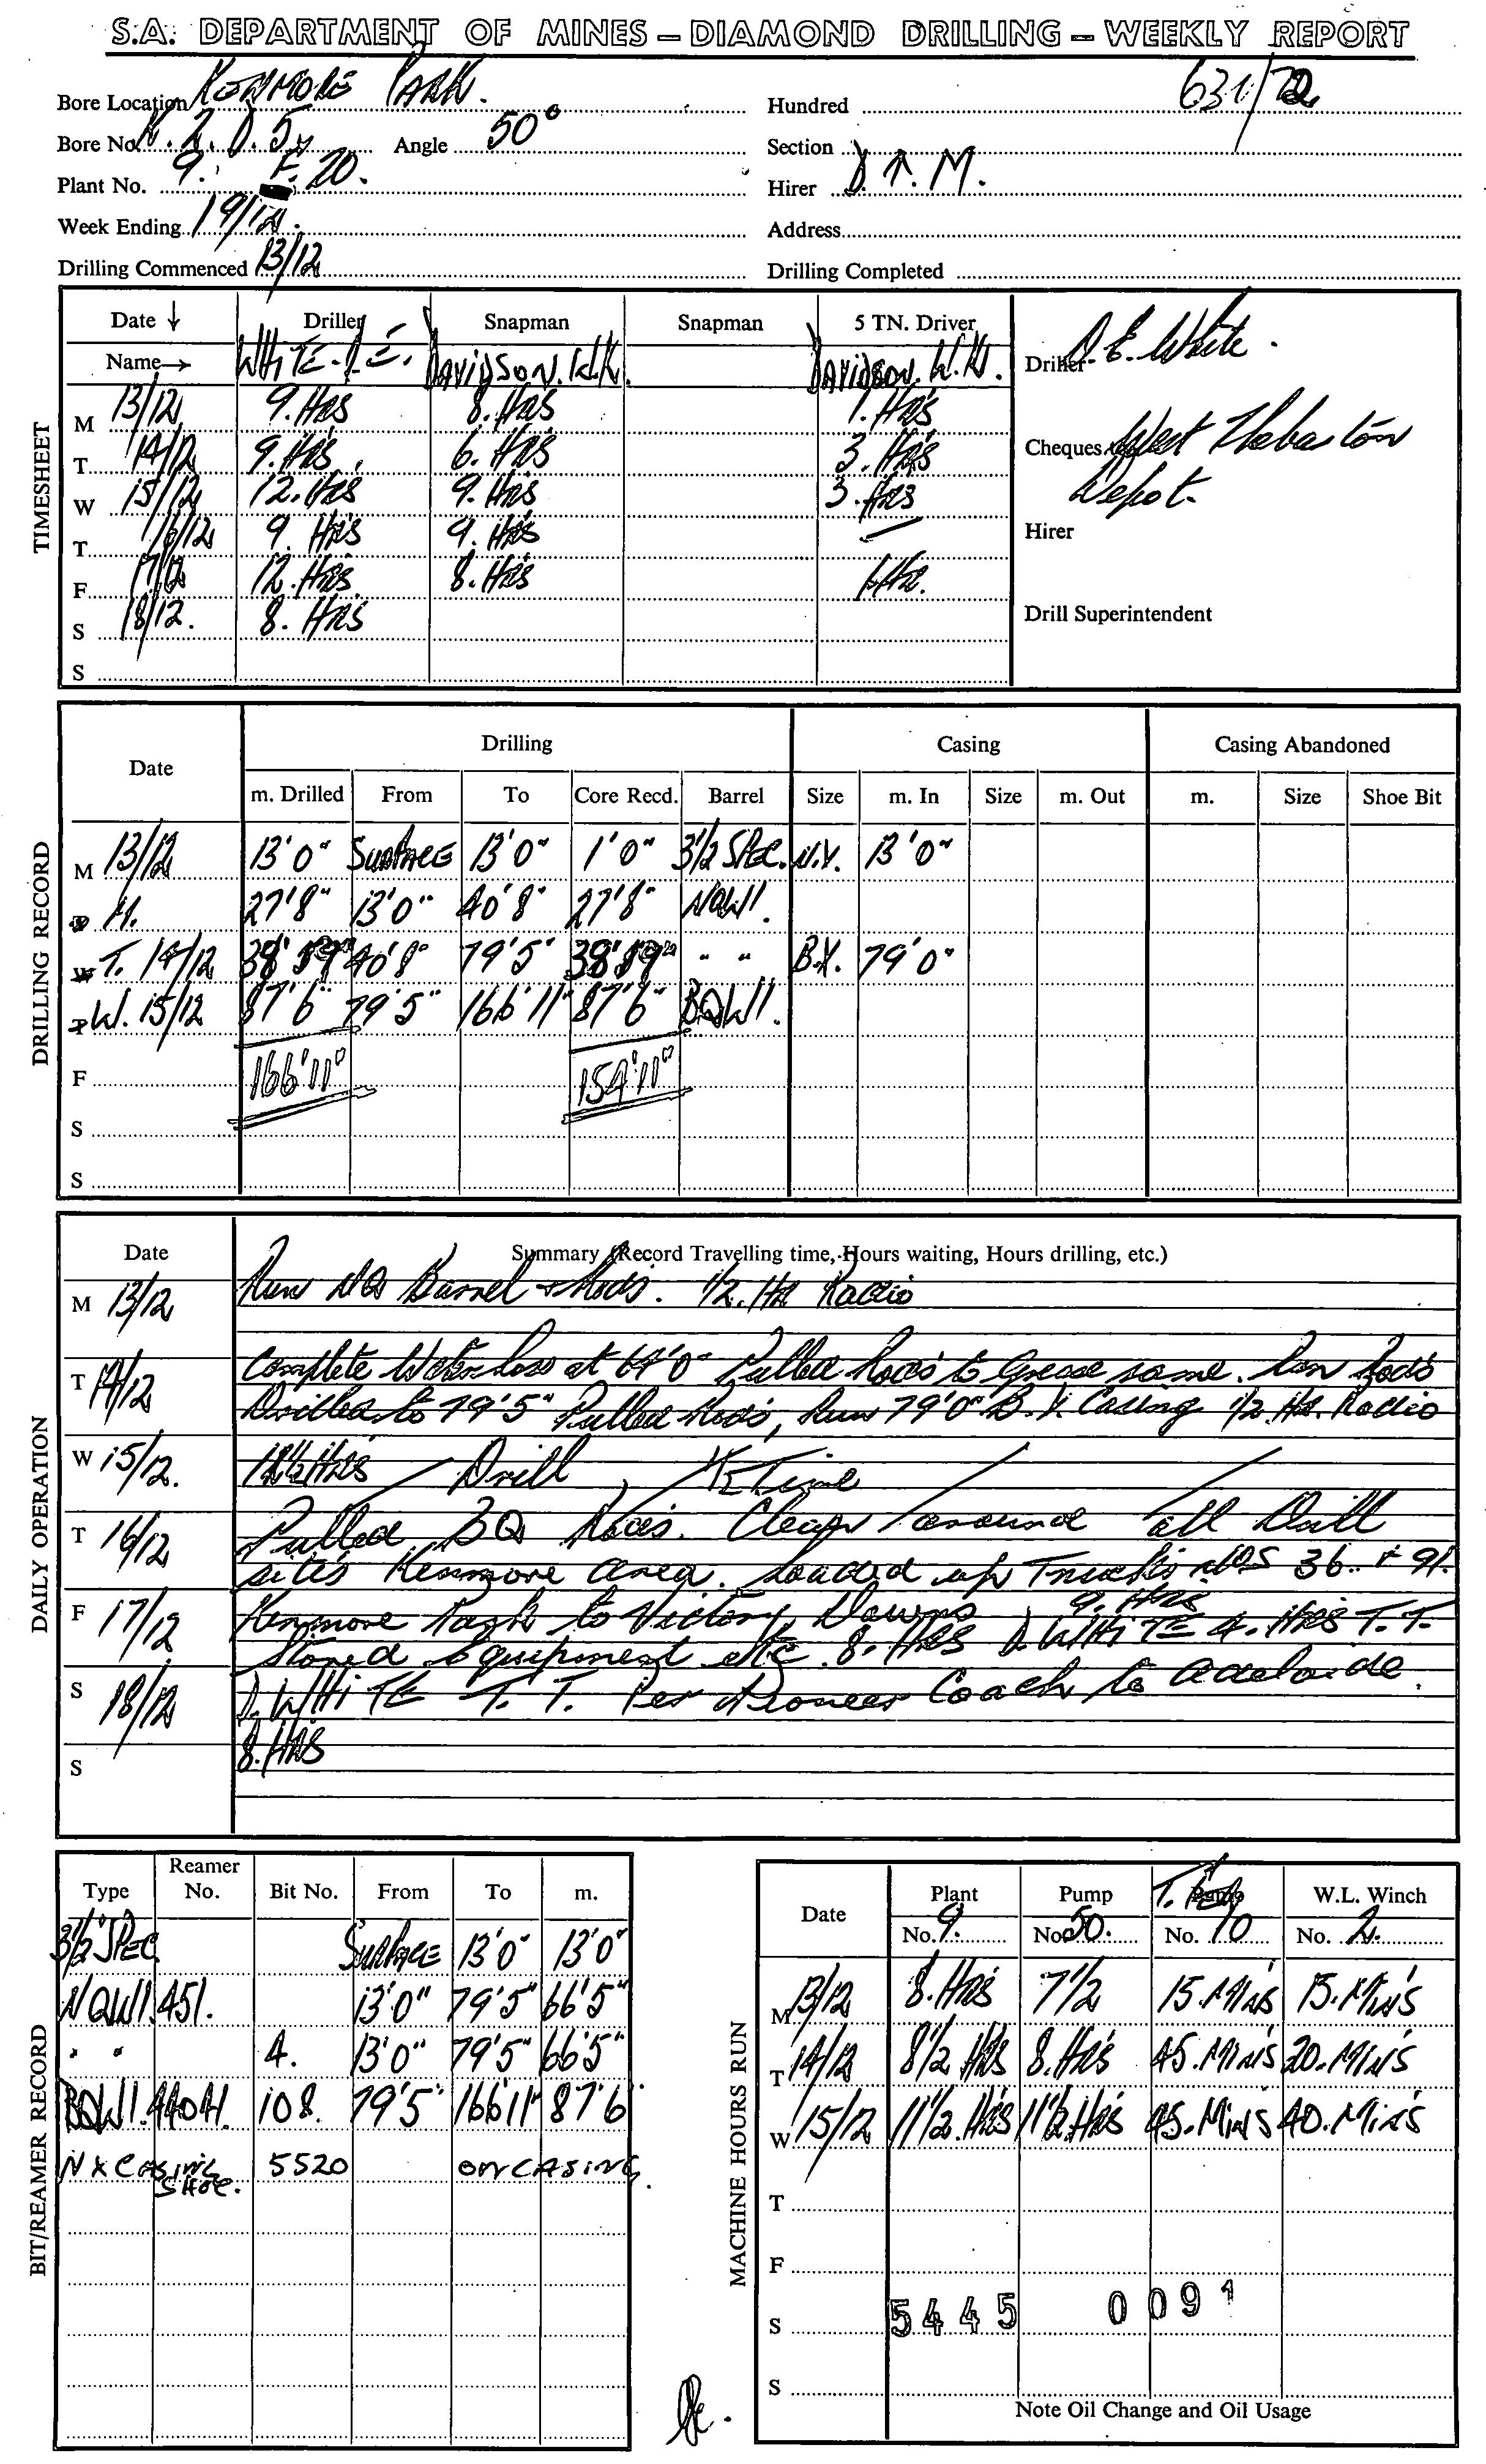 S.A. DEPARTMENT OF MINES – DIAMOND DRILLING – WEEKLY REPORT
631/72
Bore Location KENMORE PARK. Hundred
Bore No. K.2.D.5. Angle 50° Section
Plant No. 9. F.20. Hirer D.T.M.
Week Ending 19/12. Address
Drilling Commenced 13/12 Drilling Completed
TIMESHEET
Date ↓ Driller Snapman Snapman 5 TN. Driver
Name→ WHITE. D.E. DAVIDSON. W.K. DAVIDSON. W.K. Driller D. E. White.
M 13/12 9. HRS 8. HRS 1. HRS
T 14/12 9. HRS 6. HRS 3. HRS Cheques West Thebarton
W 15/12 12. HRS 9. HRS 3. HRS Depot.
T 16/12 9 HRS 9. HRS – Hirer
F 17/12 12. HRS 8. HRS 1 HR.
S 18/12. 8. HRS Drill Superintendent
S
DRILLING RECORD
Date Drilling Casing Casing Abandoned
m. Drilled From To Core Recd. Barrel Size m. In Size m. Out m. Size Shoe Bit
M 13/12 13'0" SURFACE 13'0" 1'0" 3½ SPEC. N.X. 13'0"
M. 27'8" 13'0" 40'8" 27'8" NQWI.
T. 14/12 38'9" 40'8" 79'5" 38'9" " " B.X. 79'0"
W. 15/12 87'6" 79'5" 166'11" 87'6" BQWI.
F 166'11" 154'11"
S
S
DAILY OPERATION
Date Summary (Record Travelling time, Hours waiting, Hours drilling, etc.)
M 13/12 Run NQ Barrel + Rods. 1/2. HR Radio
T 14/12 Complete Water loss at 64'0" Pulled Rods to Grease same. Run Rods
Drilled to 79'5" Pulled Rods, Run 79'0" B.X. Casing 1/2. Hr. Radio
W 15/12. 11½ HRS Drill, ½ Time
T 16/12 Pulled BQ Rods. Clean around all Drill
sites Kenmore area. Loaded up Trucks NOS 36. + 91.
F 17/12 Kenmore Park to Victory Downs 9. HRS
Stored Equipment etc. 8. HRS D. WHITE 4. HRS T.T.
S 18/12 D. WHITE T. T. Per Pioneer Coach to Adelaide.
S 8. HRS
BIT/REAMER RECORD
Type Reamer No. Bit No. From To m.
3½ SPEC. SURFACE 13'0" 13'0"
NQWI. 451. 13'0" 79'5" 66'5"
" " 4. 13'0" 79'5" 66'5"
BQWI. 4404. 108. 79'5" 166'11" 87'6"
NX CASING SHOE. 5520 ON CASING.
MACHINE HOURS RUN
Date Plant Pump W.L. Winch
No. 9. No. 50. No. 10 No. 2.
M 13/12 8. HRS 7 1/2 15. MINS 15. MINS
T 14/12 8 1/2 HRS 8. HRS 45. MINS 20. MINS
W 15/12 11 1/2. HRS 11 1/2 HRS 45. MINS 40. MINS
T
F
S 5445 0091
S
Note Oil Change and Oil Usage